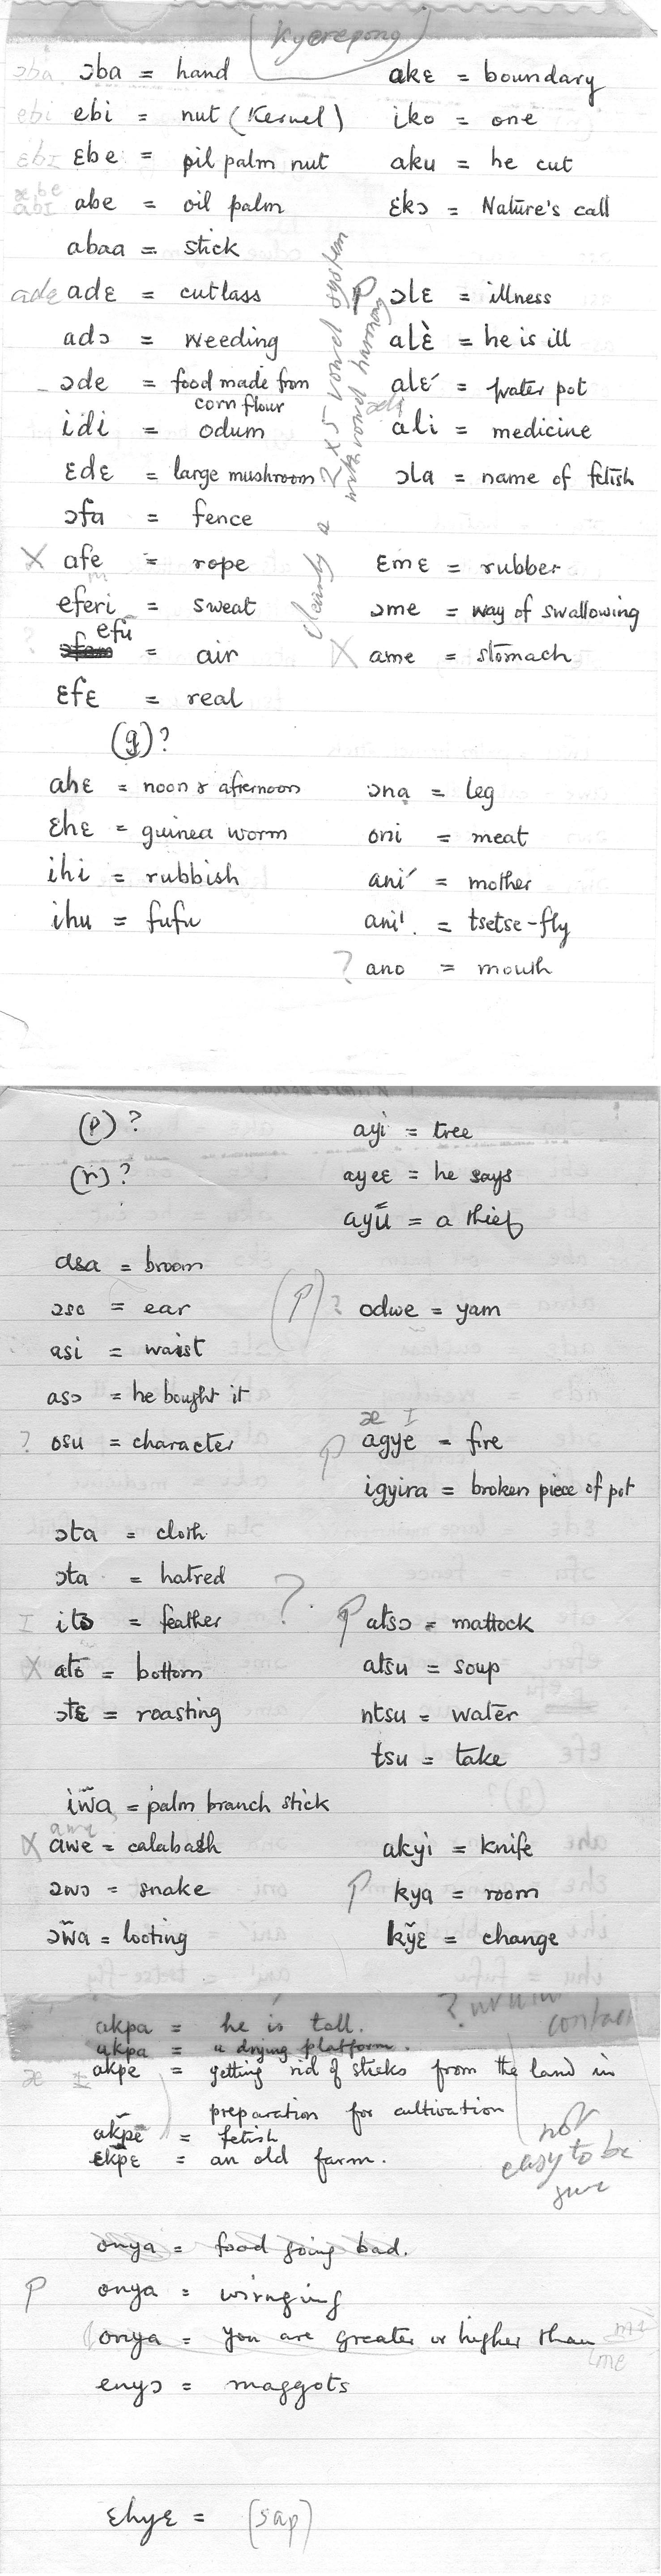 (Kyerepong)
ɔba ɔba = hand
ebi ebi = nut (Kernel)
ɛbɪ ɛbe = oil palm nut
æbe abɪ abe = oil palm
abaa = stick
ade adɛ = cutlass
adɔ = weeding
ɔde = food made from corn flour
idi = odum
ɛdɛ = large mushroom
ɔfa = fence
X afe = rope
eferi = sweat
? efũ = air
ɛfɛ = real
(g)?
ahɛ = noon & afternoon
ɛhɛ = guinea worm
ihi = rubbish
ihu = fufu
akɛ = boundary
iko = one
aku = he cut
ɛkɔ = Nature's call
P ɔlɛ = illness
alɛ̀ = he is ill
alɛ́ = water pot
æli ali = medicine
ɔla = name of fetish
clearly a 2x5 vowel system with vowel harmony
ɛmɛ = rubber
ɔme = way of swallowing
X ame = stomach
ɔna = leg
oni = meat
ani´ = mother
ani'. = tsetse-fly
? ano = mouth
(p)?
(r)?
asa = broom
ɔso = ear
asi = waist
asɔ = he bought it
? osu = character
ɔta = cloth
ɔta = hatred
I itɔ = feather ?
X atõ = bottom
ɔtɛ = roasting
iw̃a = palm branch stick
X awe = calabash
ɔwɔ = snake
ɔw̃a = looting
ayi = tree
ayeɛ = he says
ayũ = a thief
(P)? odwe = yam
æ I
P agye = fire
igyira = broken piece of pot
P atsɔ = mattock
atsu = soup
ntsu = water
tsu = take
akyi = knife
P kya = room
kỹɛ = change
akpa = he is tall.
akpa = a drying platform.
æ ɪ akpe = getting rid of sticks from the land in
preparation for cultivation
akpẽ = fetish
ɛkpɛ = an old farm.
? contac
not easy to be sure
onya = food going bad.
P onya = wringing
(onya = you are greater or higher than me
enyɔ = maggots
ɛhyɛ = (sap)